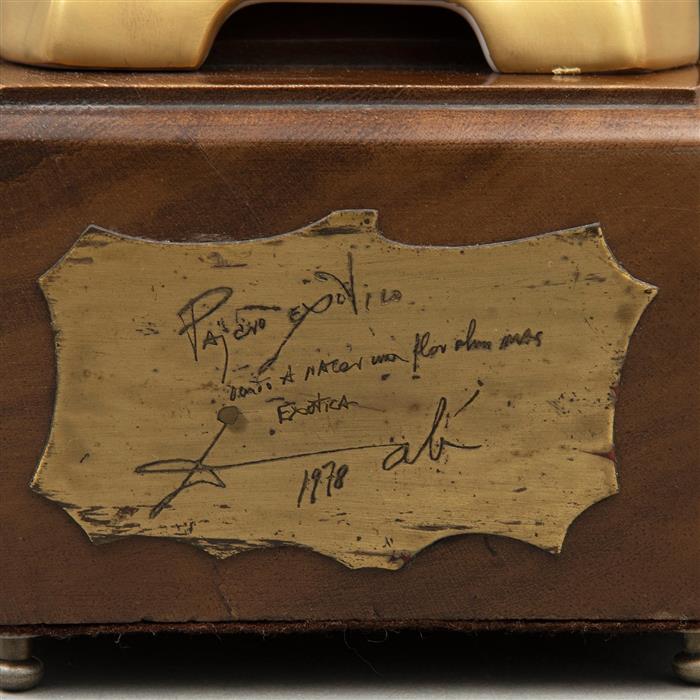 Pajaro exotico
A nacer una flor mas
Exotica
Dalí
1978